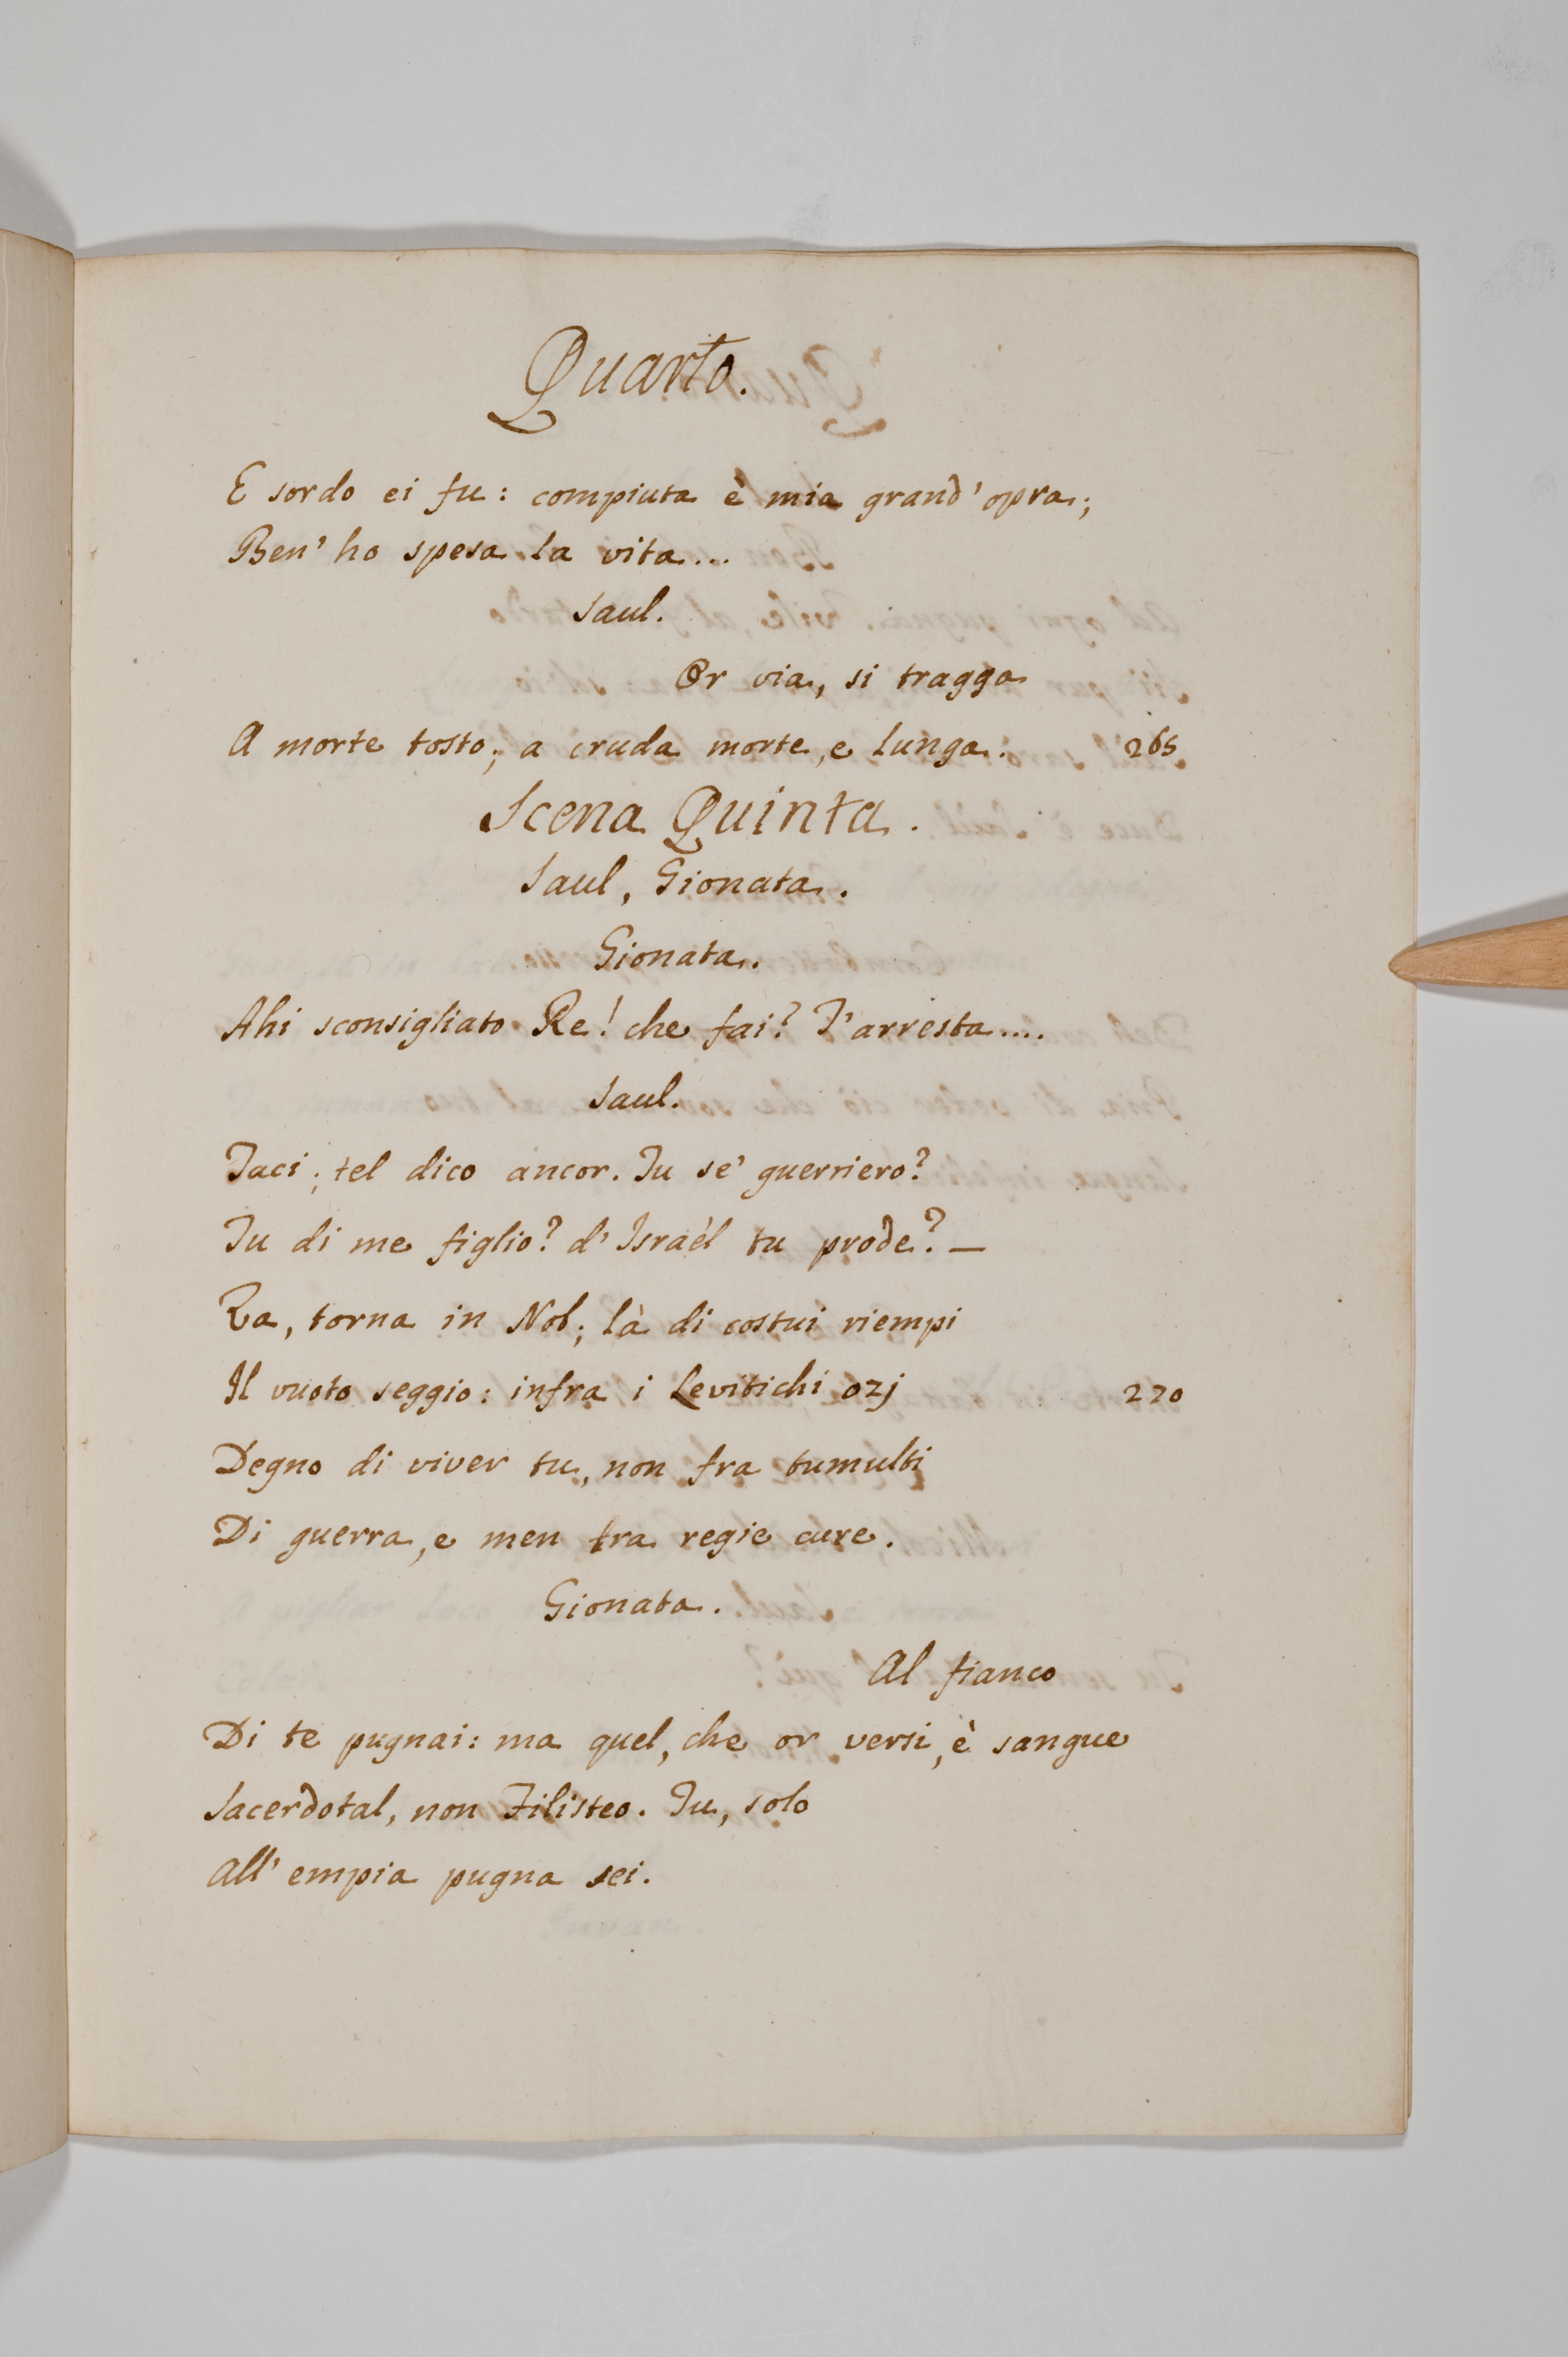 Quarto.
E sordo ei fu: compiuta è mia grand'opra;
Ben' ho spesa la vita...
Saul.
Or via, si tragga
A morte tosto; a cruda morte, e lunga. 265
Scena Quinta.
Saul, Gionata.
Gionata.
Ahi sconsigliato Re! che fai? T'arresta....
Saul.
Taci; tel dico ancor. Tu se' guerriero?
Tu di me figlio? d'Israèl tu prode? —
Va, torna in Nob; là di costui riempi
Il vuoto seggio: infra i Levitichi ozj 270
Degno di viver tu, non fra tumulti
Di guerra, e men tra regie cure.
Gionata.
Al fianco
Di te pugnai: ma quel, che or versi, è sangue
Sacerdotal, non Filisteo. Tu, solo
All' empia pugna sei.